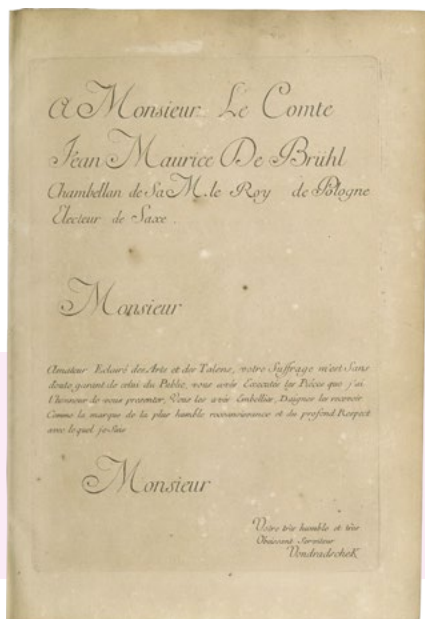 A Monsieur Le Comte
Jean Maurice De Brühl
Chambellan de Sa M. le Roy de Pologne
Electeur de Saxe.
Monsieur
Amateur Eclairé des Arts et des Talens, votre Suffrage m'est Sans
doute garant de celui du Public, vous avés Executés les Piéces que j'ai
l'honneur de vous presenter, Vous les avés Embellies, Daignes les recevoir
Comme la marque de la plus humble reconnoissance et du profond Respect
avec lequel je Suis
Monsieur
Votre très humble et très
Obeissant Serviteur
VondradscheK